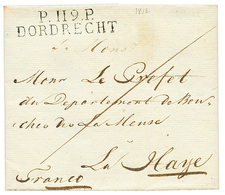 P.119.P.
DORDRECHT
1812
Monr Le Prefet
du Departement de Bou-
ches de La Meuse
La Haye
Franco